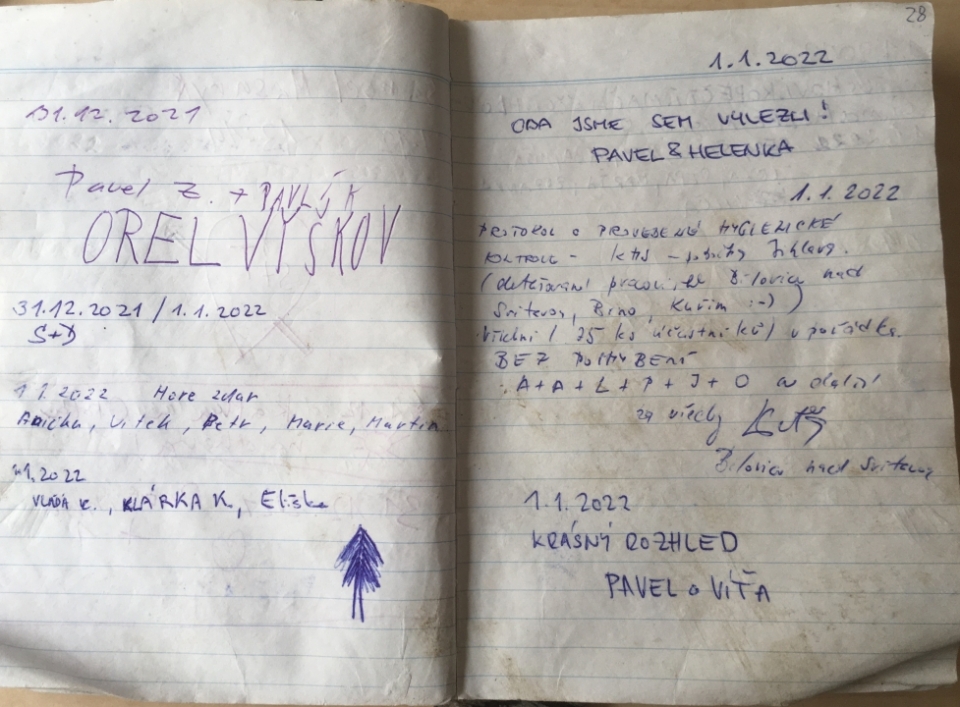 31.12.2021
Pavel Z. + PAVEL Š K
OREL VYŠKOV
31.12.2021 / 1.1.2022
S+D
1 1.2022 Hore zdar
Anička, Vítek, Petr, Marie, Martin
1.2022
VLÁĎA K., KLÁRKA K., Eliška
28
1.1.2022
OBA JSME SEM VYLEZLI!
PAVEL & HELENKA
1.1.2022
PROTOKOL O PROVEDENÉ HYGIENICKÉ
KONTROLE -
(detašované pracoviště Bílovice nad
Svitavou, Brno, Kuřim :-)
Všichni (25 ks účastníků) v pořádku.
BEZ POCHYBENÍ
A+A+L+P+J+O a další
za všechny
Bílovice nad Svitavou
1.1.2022
KRÁSNÝ ROZHLED
PAVEL a VÍŤA